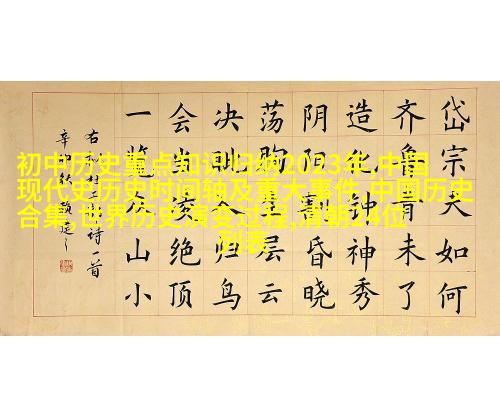 初中历史重点知识归纳2023年,中国
现代史历史时间轴及重大事件,中国历史
合集,世界历史演变过程,清朝24位
列表
岱宗夫如何
齐鲁青未了
造化钟神秀
阴阳割昏晓
荡胸生层云
决眦入归鸟
会当凌绝顶
一览众山小
右诗一首
辛